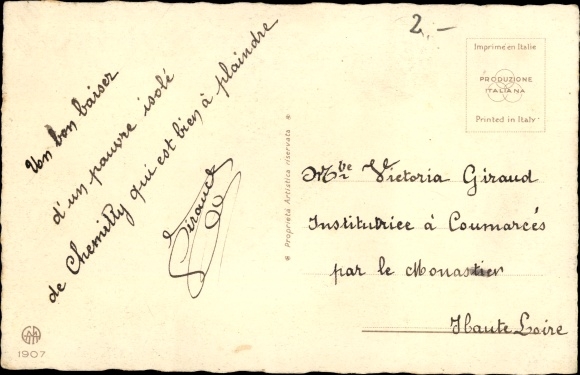 2,-
Un bon baiser
d'un pauvre isolé
de Chemilly qui est bien à plaindre
Giraud
Proprietà Artistica riservata
Imprimé en Italie
PRODUZIONE
ITALIANA
Printed in Italy
Mbe Victoria Giraud
Institutrice à Coumarcés
par le Monastier
Haute Loire
1907